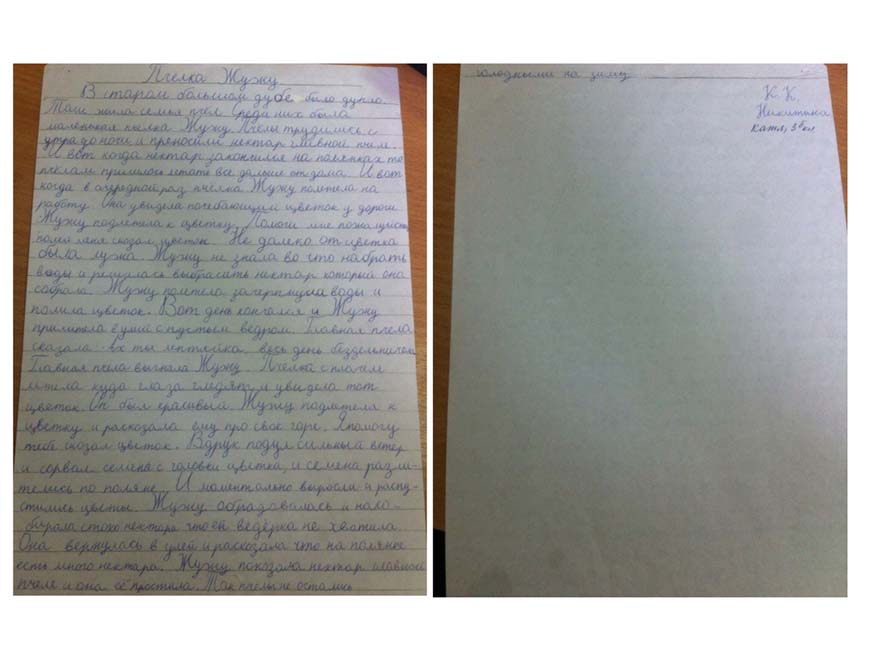 Пчелка Жужу
В старом большом дубе было дупло.
Там жила семья пчел. Среди них была
маленькая пчелка Жужу. Пчелы трудились с
утра до ночи и приносили нектар главной пчеле.
И вот когда нектар закончился на полянках то
пчелам пришлось летать все дальше от дома. И вот
когда в очередной раз пчёлка Жужу полетела на
работу. Она увидела погебающий цветок у дороги
Жужу подлетела к цветку. Помоги мне пожалуйста
полей меня сказал цветок. Не далеко от цветка
была лужа. Жужу не знала во что набрать
воды и решилась выбрасить нектар который она
собрала. Жужу полетела зачерпнула воды и
полила цветок. Вот день кончался и Жужу
прилитела в улий с пустым ведром. Главная пчела
сказала эх ты лентяйка весь день бездельничала
Главная пчела выгнала Жужу. Пчелка с плачем
летела куда глаза глядят и увидела тот
цветок. Он был красивый. Жужу подлетела к
цветку и расказала ему про свое горе. Я помогу
тебе сказал цветок. Вдрук подул сильный ветер
и сорвал семена с головки цветка, и семена разле-
телись по поляне. И моментально выросли и распу-
стились цветы. Жужу обрадавалась и насо-
бирала стоко нектара что ей ведёрка не хватила.
Она вернулась в улей и расказала что на полянке
есть много нектара. Жужу показала нектар главной
пчеле и она её простила. Так пчелы не остались
голодными на зиму.
К. К.
Никитина
Катя, 3б кл